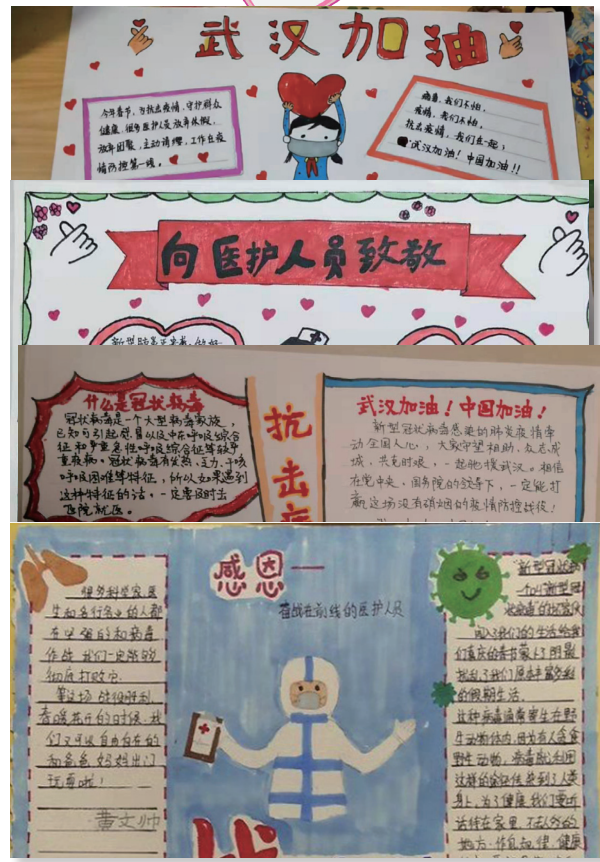 武汉加油
今年春节,为抗击疫情,守护群众
健康,很多医护人员放弃休假,
放弃团聚,主动请缨,工作在疫
情防控第一线。
病毒,我们不怕,
疫情,我们不怕,
抗击疫情,我们在一起,
武汉加油!中国加油!!
向医护人员致敬
什么是冠状病毒
冠状病毒是一个大型病毒家族,
已知可引起感冒以及中东呼吸综合
征和严重急性呼吸综合征等较严
重疾病。冠状病毒有发热、乏力、干咳
呼吸困难等特征,所以如果遇到
这种特征的话,一定要及时去
医院就医。
抗击
武汉加油!中国加油!
新型冠状病毒感染的肺炎疫情牵
动全国人心,大家守望相助,众志成
城,共克时艰,一起驰援武汉。相信
在党中央、国务院的领导下,一定能打
赢这场没有硝烟的疫情防控战役!
感恩一
奋战在前线的医护人员
很多科学家,医
生和各行各业的人都
在坚强的和病毒
作战,我们一定能够
彻底打败它。
等这场战役胜利,
春暖花开的时候,我
们又可以自由自在的
和爸爸妈妈出门
玩耍啦!
黄文帅
"新型冠状病
闯入了我们的生活给我
的假期生活。
这种病毒通常寄生在野
生动物体内,因为有人食食
野生动物,病毒就利用
身上,为了健康,我们要听
话待在家里,不去人多的